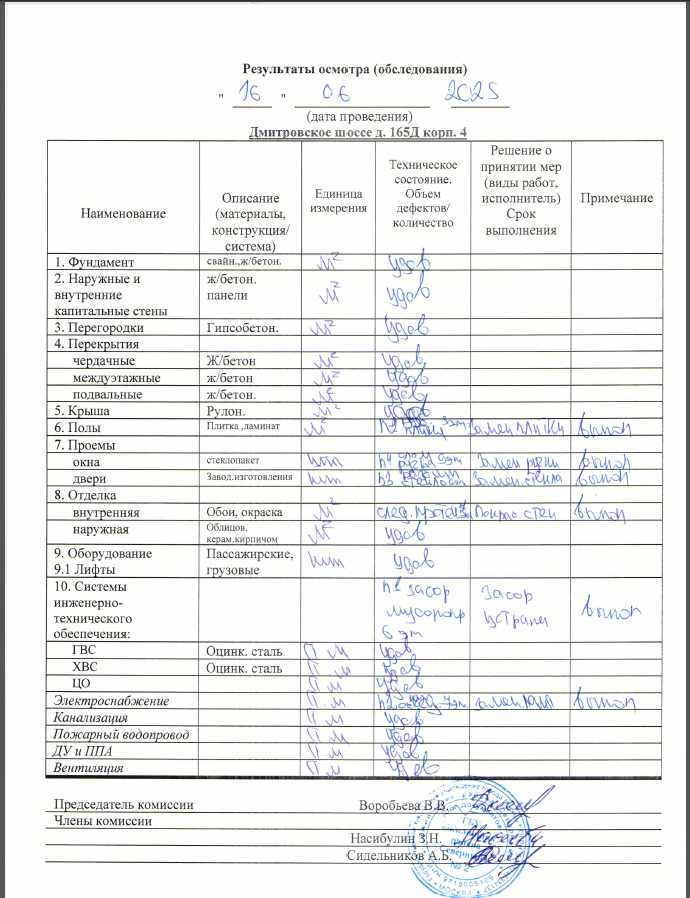 Результаты осмотра (обследования)
" 16 " 06 2025
(дата проведения)
Дмитровское шоссе д. 165Д корп. 4
Наименование
Описание (материалы, конструкция/ система)
Единица измерения
Техническое состояние. Объем дефектов/ количество
Решение о принятии мер (виды работ, исполнитель) Срок выполнения
Примечание
1. Фундамент свайн.,ж/бетон. м2 удов
2. Наружные и внутренние капитальные стены ж/бетон. панели м2 удов
3. Перегородки Гипсобетон. м2 удов
4. Перекрытия
чердачные Ж/бетон м2 удов
междуэтажные ж/бетон м2 удов
подвальные ж/бетон. м2 удов
5. Крыша Рулон. м2 удов
6. Полы Плитка ,ламинат м2 п2 плитки замен плитки выпол
7. Проемы
окна стеклопакет шт п4 слом ручка 9эт замен ручки выпол
двери Завод.изготовления шт п3 замен стекла выпол
8. Отделка
внутренняя Обои, окраска м2 след. протечки Покрас стен выпол
наружная Облицов. керам.кирпичом м2 удов
9. Оборудование
9.1 Лифты Пассажирские, грузовые шт удов
10. Системы инженерно-технического обеспечения: п1 засор мусоропр 6 эт Засор устранен выпол
ГВС Оцинк. сталь П м удов
ХВС Оцинк. сталь П. м удов
ЦО П м удов
Электроснабжение П. м п2 7эт замен выпол
Канализация П м удов
Пожарный водопровод П м удов
ДУ и ППА П м удов
Вентиляция П м удов
Председатель комиссии Воробьева В.В.
Члены комиссии
Насибулин З.Н.
Сидельников А.Б.